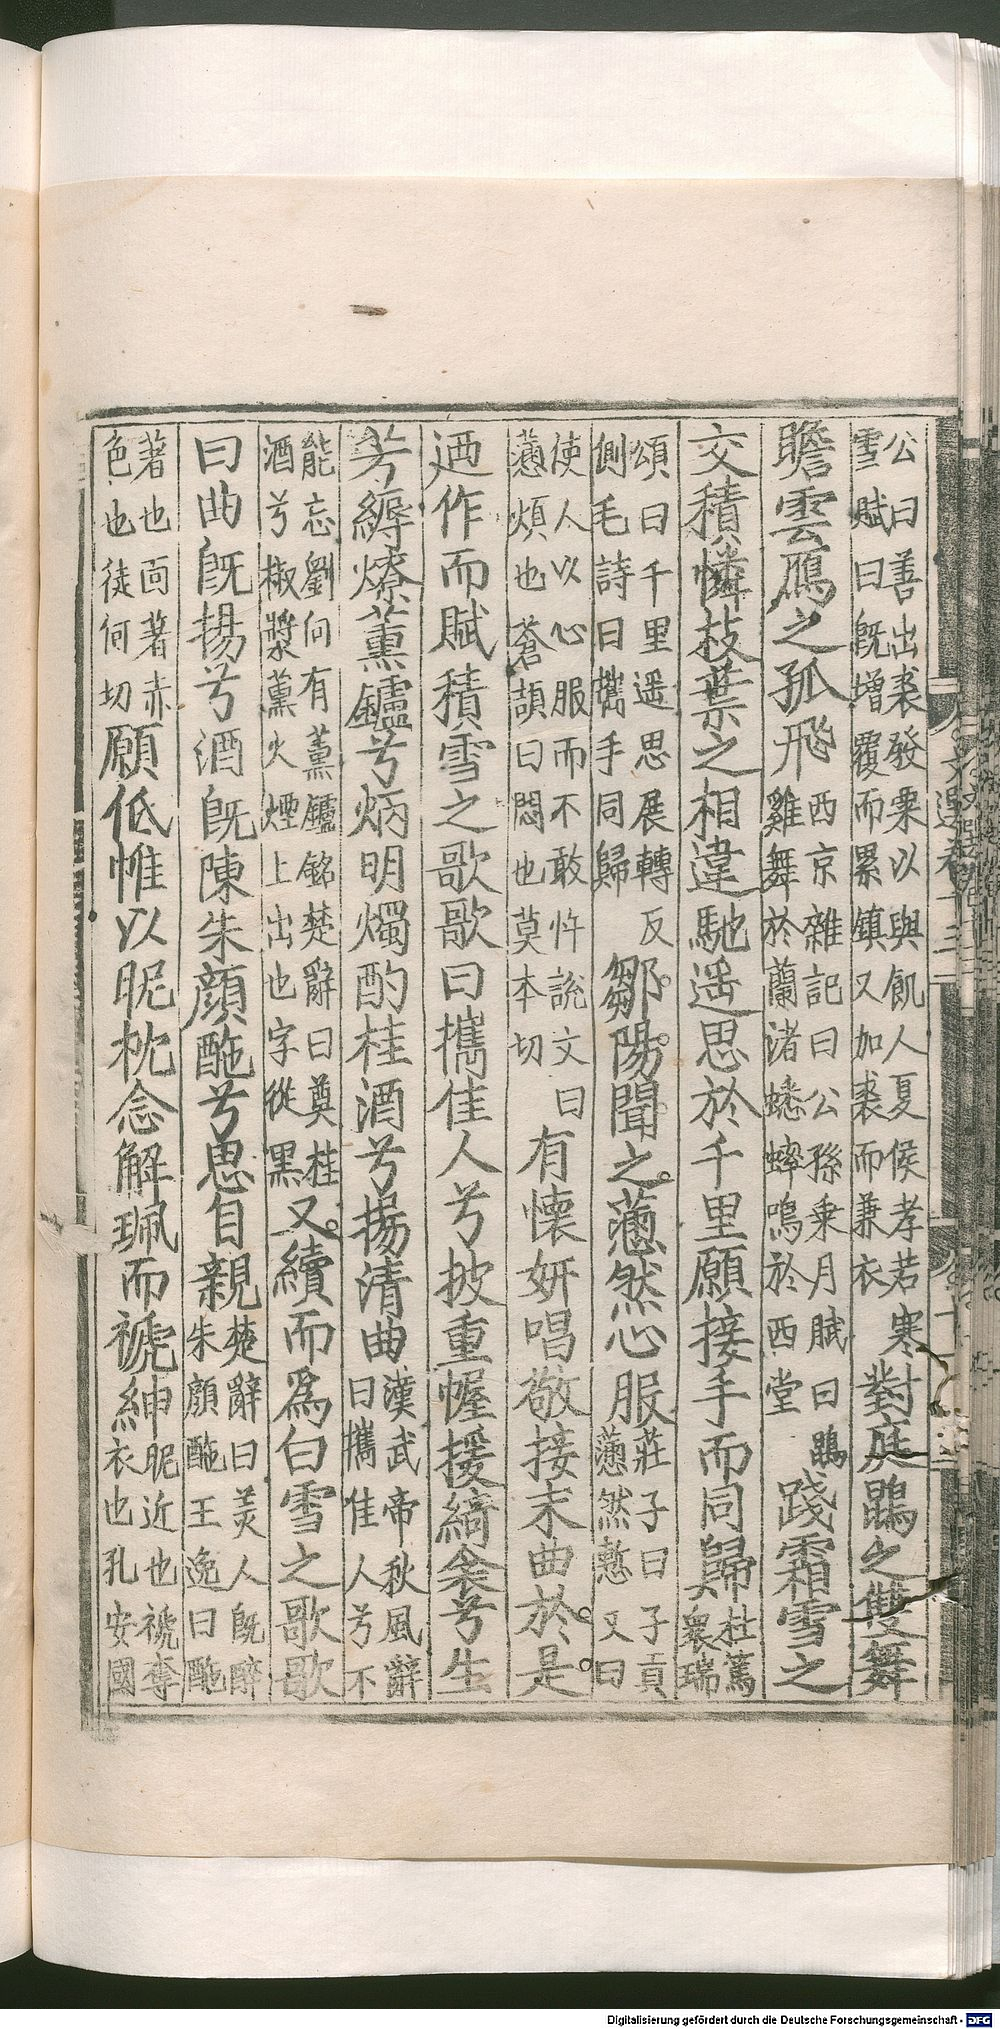 公曰善出裘發粟以與飢人夏侯孝若寒雪賦曰既增覆而累鎮又加裘而兼衣對庭鵾之雙舞
瞻雲鴈之孤飛西京雜記曰公孫乘月賦曰鵾雞舞於蘭渚蟋蟀鳴於西堂踐霜雪之
交積憐枝葉之相違馳遥思於千里願接手而同歸杜篤衆瑞
頌曰千里遥思展轉反側毛詩曰攜手同歸鄒陽聞之懣然心服莊子曰子貢懣然慙又曰
使人以心服而不敢忤説文曰懣煩也蒼頡曰悶也莫本切有懷妍唱敬接末曲於是
迺作而賦積雪之歌歌曰攜佳人兮披重幄援綺衾兮生
芳縟燎薰鑪兮炳明燭酌桂酒兮揚清曲漢武帝秋風辭曰攜佳人兮不
能忘劉向有薰鑪銘楚辭曰奠桂酒兮椒漿薰火煙上出也字從黑又續而爲白雪之歌歌
曰曲既揚兮酒既陳朱顔酡兮思自親楚辭曰美人既醉朱顔酡王逸曰酡
著也面著赤色也徒何切願低帷以昵枕念解珮而褫紳昵近也褫奪衣也孔安國
Digitalisierung gefördert durch die Deutsche Forschungsgemeinschaft - DFG